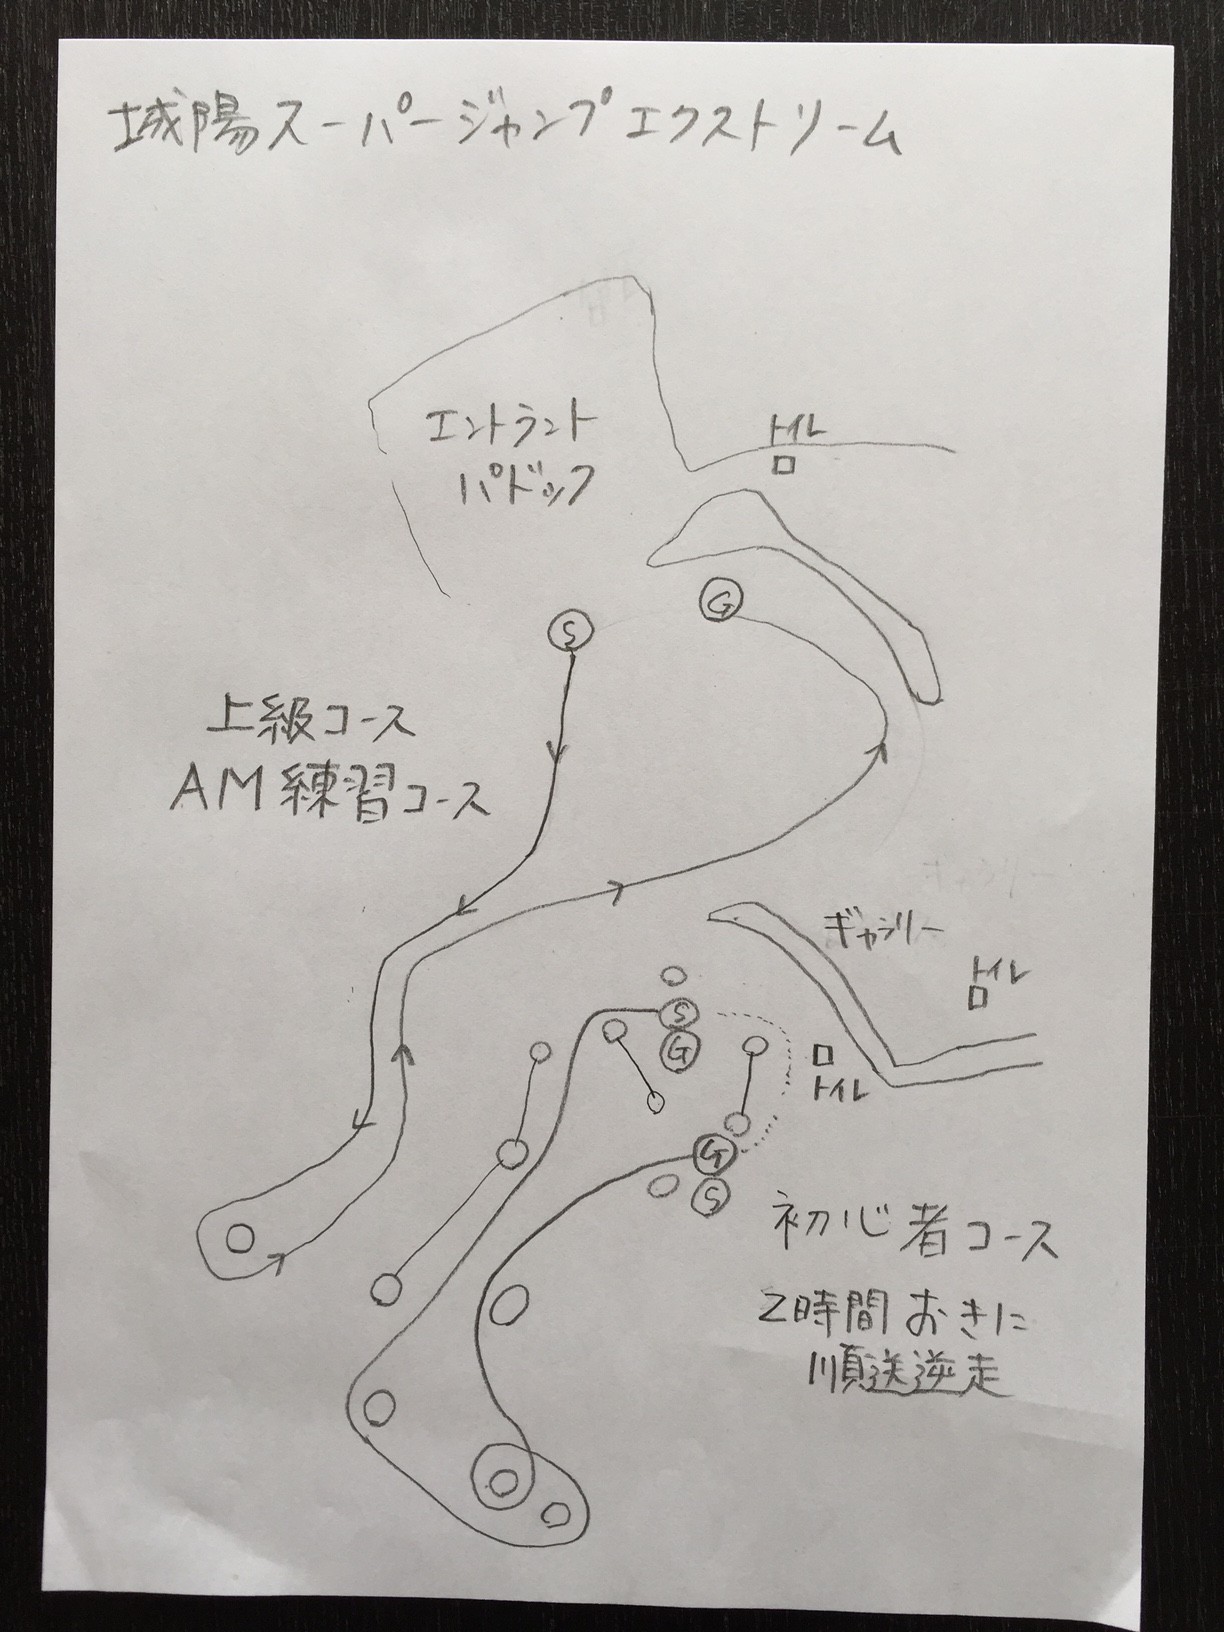 城陽スーパージャンプエクストリーム
エントラント
パドック
トイレ
G
S
上級コース
AM練習コース
ギャラリー
トイレ
S
G
トイレ
G
S
初心者コース
2時間おきに
順送逆走